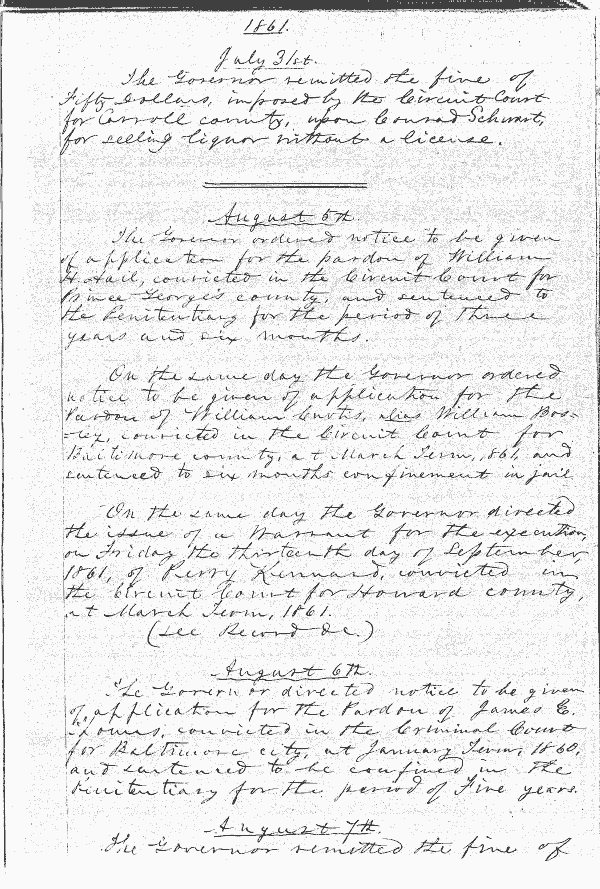 1861.
July 31st.
The Governor remitted the fine of
Fifty Dollars, imposed by the Circuit Court
for Carroll county, upon Conrad Schwart,
for selling liquor without a license.
August 6th.
The Governor ordered notice to be given
of application for the pardon of William
H. Hail, convicted in the Circuit Court for
Prince George's county, and sentenced to
the Penitentiary for the period of three
years and six months.
On the same day the Governor ordered
notice to be given of application for the
Pardon of William alias William Bos=
=ley, convicted in the Circuit Court for
Baltimore county, at March Term, 1861, and
sentenced to six months confinement in jail
On the same day the Governor directed
the issue of a Warrant for the execution,
on Friday the thirteenth day of September,
1861, of Perry Kennard, convicted in
the Circuit Court for Howard county,
at March Term, 1861.
(See Record &c.)
August 6th.
The Governor directed notice to be given
of application for the Pardon of James E.
Thomas, convicted in the Criminal Court
for Baltimore city, at January Term, 1860,
and sentenced to be confined in the
Penitentiary for the period of Five years.
August 7th.
The Governor remitted the fine of